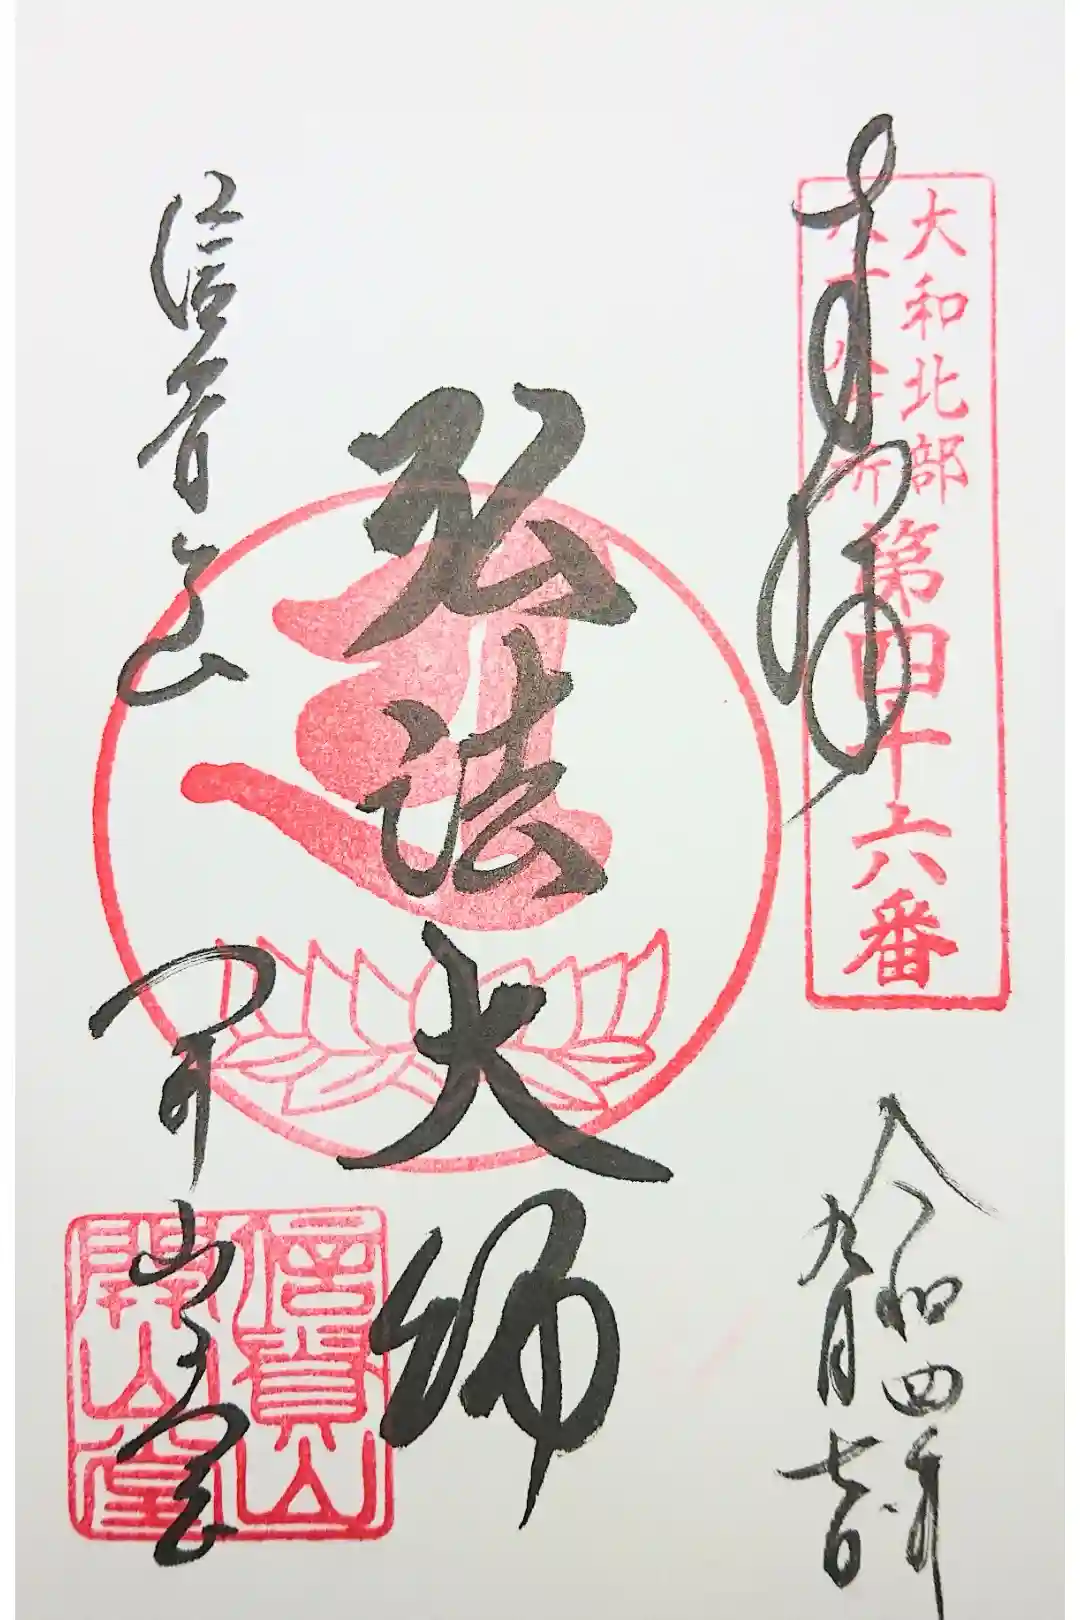 奉拝
大和北部
八十八ヶ所
第四十六番
令和四年
九月
弘法大師
信貴山
開山堂
信貴山
開山堂